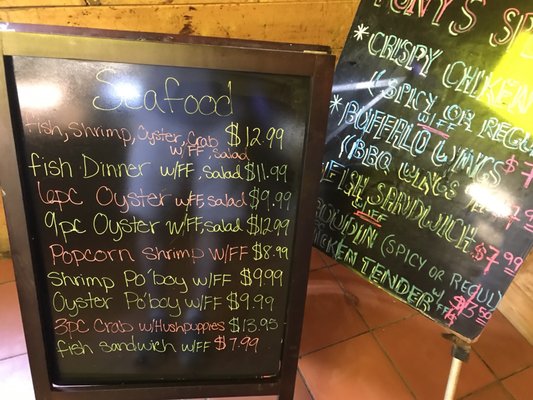 Seafood
fish, shrimp, Oyster, Crab $12.99
w/FF, salad
fish Dinner w/FF, salad $11.99
6pc Oyster w/FF, salad $9.99
9pc Oyster w/FF, salad $12.99
Popcorn Shrimp w/FF $8.99
Shrimp Po'boy w/FF $9.99
Oyster Po'boy w/FF $9.99
3pc Crab w/Hushpuppies $13.95
fish sandwich w/FF $7.99
TONY'S
CRISPY CHICKEN
(SPICY OR REGU
w/FF
BUFFALO WINGS $7
(BBQ WINGS
FISH SANDWICH $7.99
w/FF
BOUDIN (SPICY OR REGUL
CHICKEN TENDER
w/FF